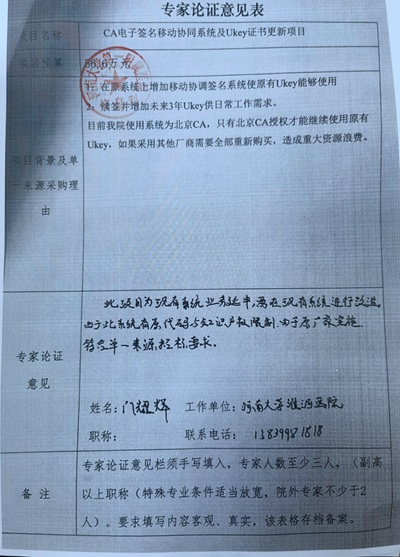 专家论证意见表
项目名称 CA电子签名移动协同系统及Ukey证书更新项目
项目预算 万元
项目背景及单一来源采购理由
1、在原系统上增加移动协调签名系统使原有Ukey能够使用
2、续签并增加未来3年Ukey供日常工作需求。
目前我院使用系统为北京CA，只有北京CA授权才能继续使用原有
Ukey，如果采用其他厂商需要全部重新购买，造成重大资源浪费。
专家论证意见
此项目为现有系统业务延申，需在现有系统进行改造
由于此系统有原代码与知识产权限制，由于原厂家实施
符合单一来源招标要求。
姓名：门耀辉 工作单位：河南大学淮河医院
职称： 联系电话：13839981818
备 注
专家论证意见栏须手写填入，专家人数至少三人，（副高
以上职称（特殊专业条件适当放宽，院外专家不少于2
人）。要求填写内容客观、真实，该表格存档备案。